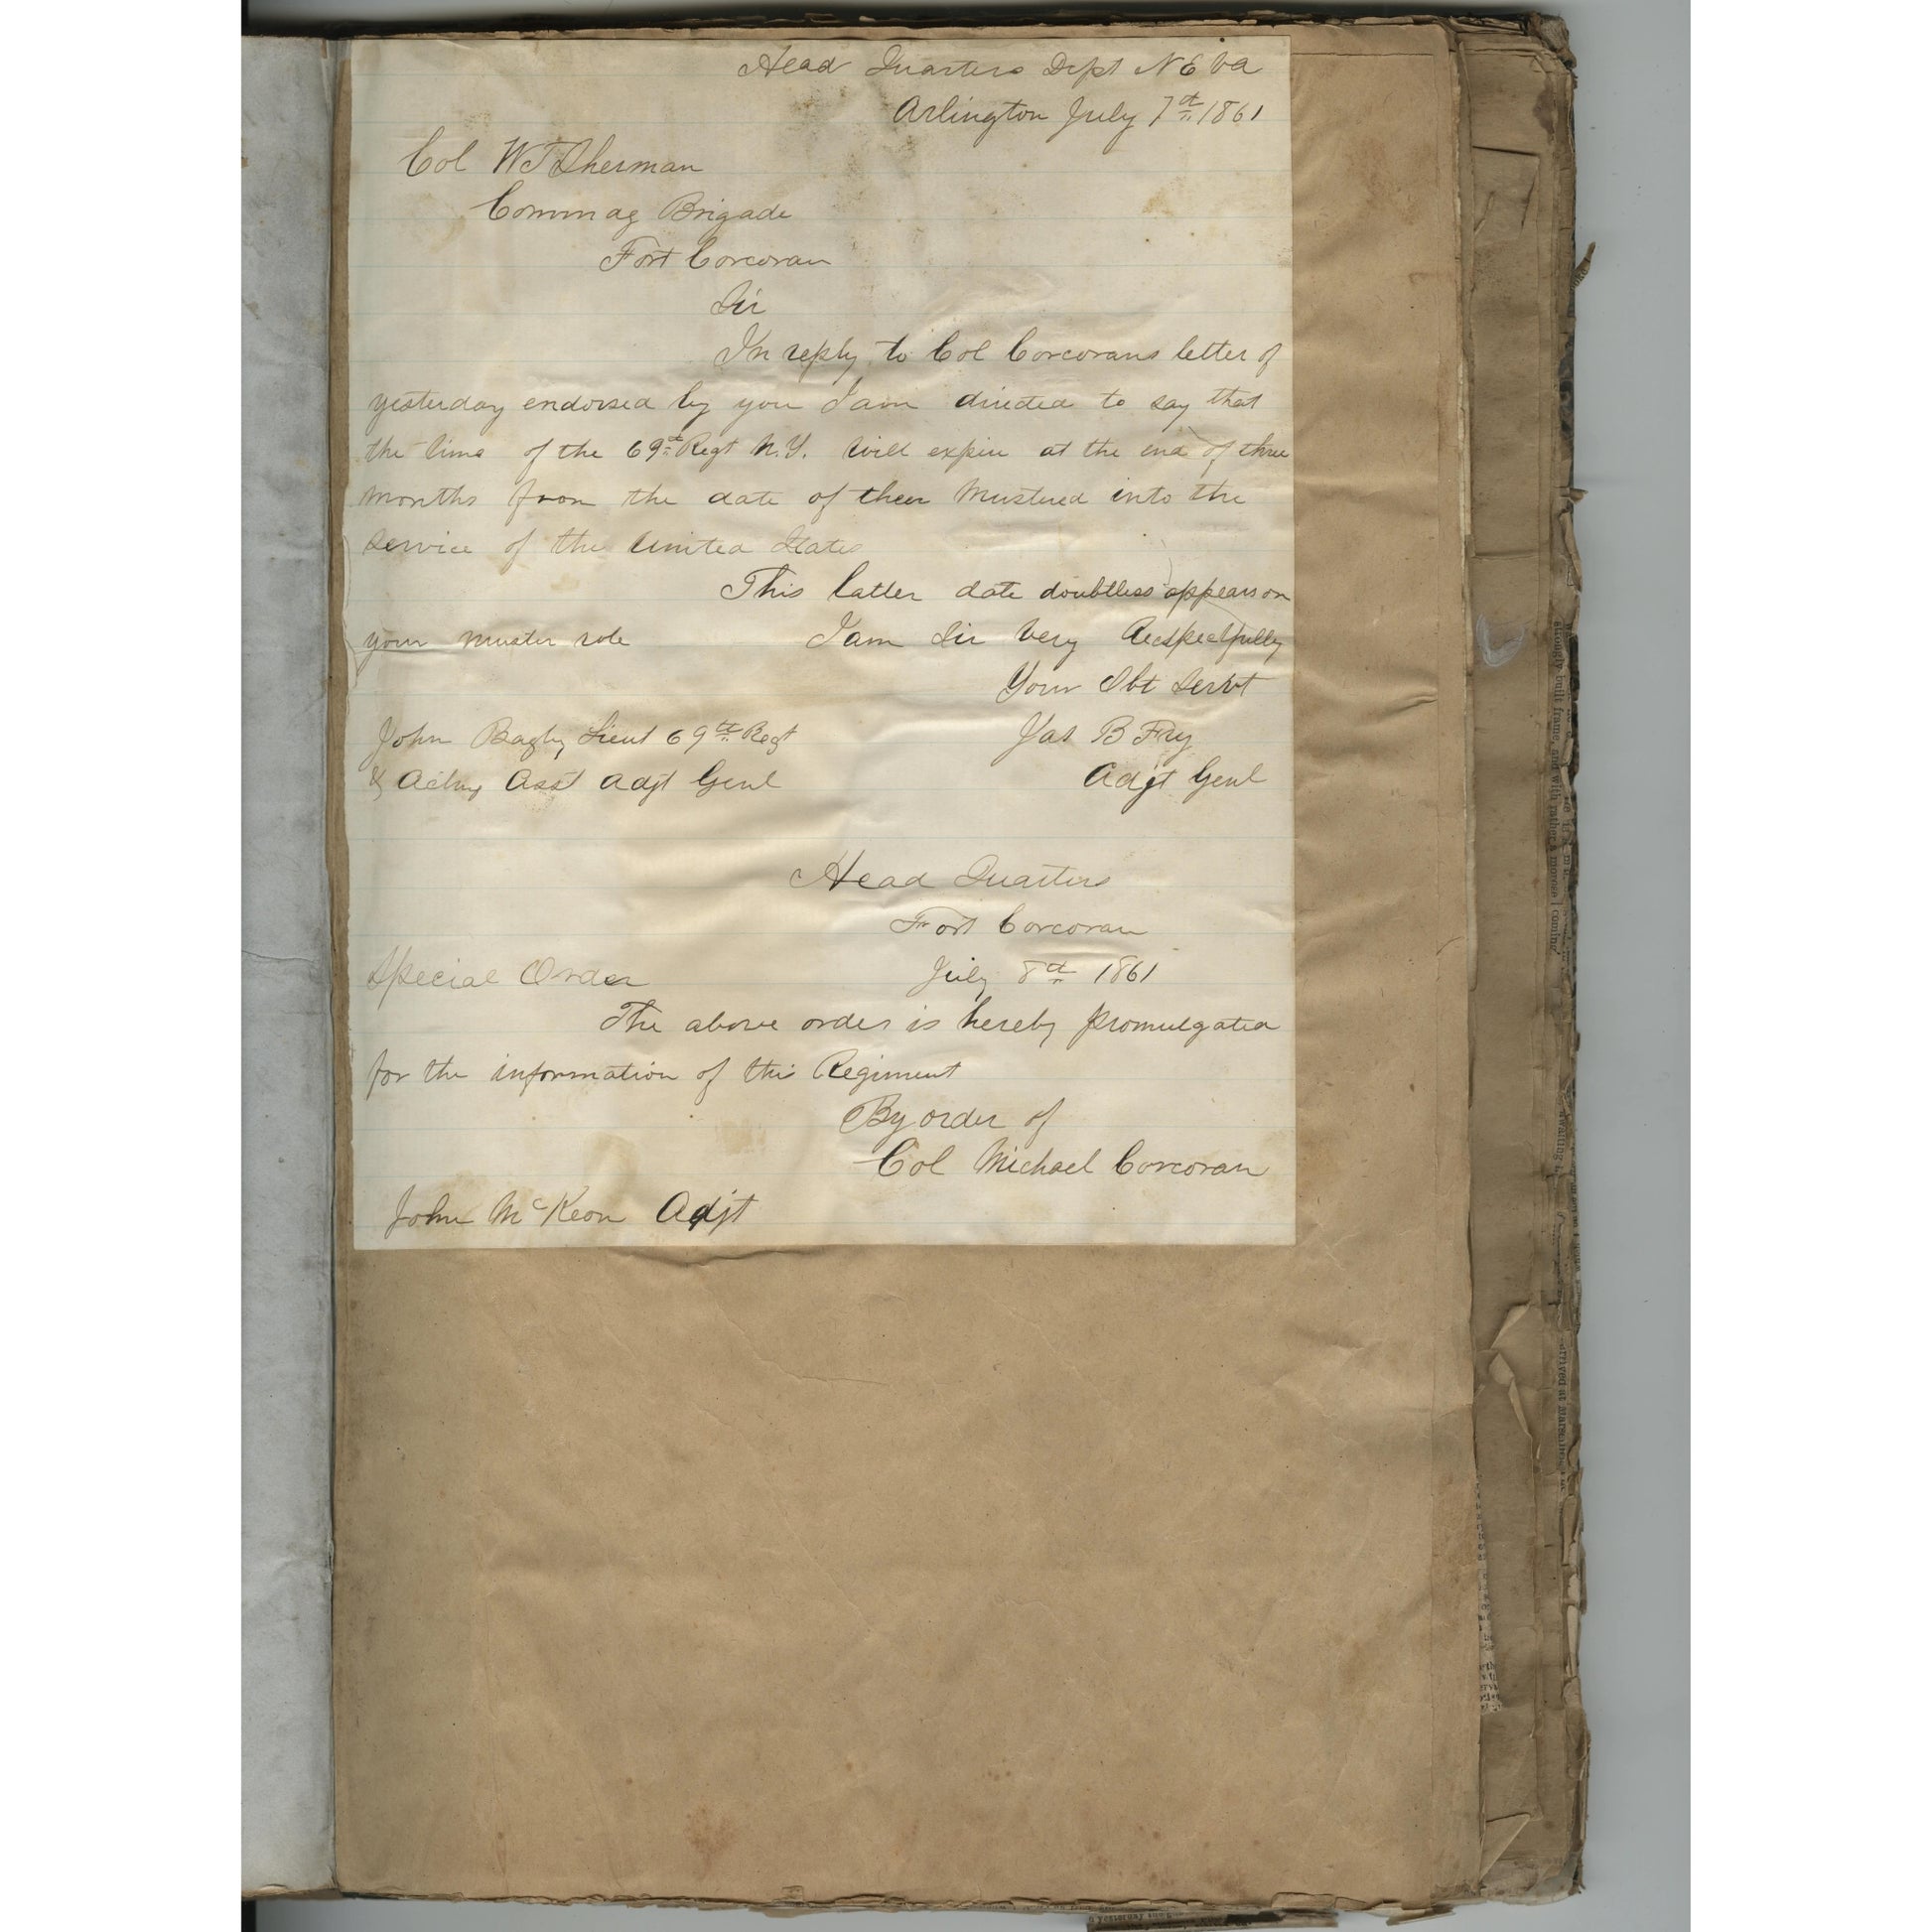 Head Quarters Dept N E Va
Arlington July 7th 1861
Col W T Sherman
Commag Brigade
Fort Corcoran
Sir
In reply to Col Corcorans letter of
yesterday endorsed by you I am directed to say that
the time of the 69th Regt N.Y. will expire at the end of three
months from the date of their Mustered into the
service of the United States
This latter date doubtless appears on
your muster role I am Sir Very Respectfully
Your Obt Servt
John Bagly Lieut 69th Regt Jas B Fry
& Acting Asst Adjt Genl Adjt Genl
Head Quarters
Fort Corcoran
Special Order July 8th 1861
The above order is hereby promulgated
for the information of this Regiment
By order of
Col Michael Corcoran
John McKeon Adjt
strongly built frame, and with rather a morose